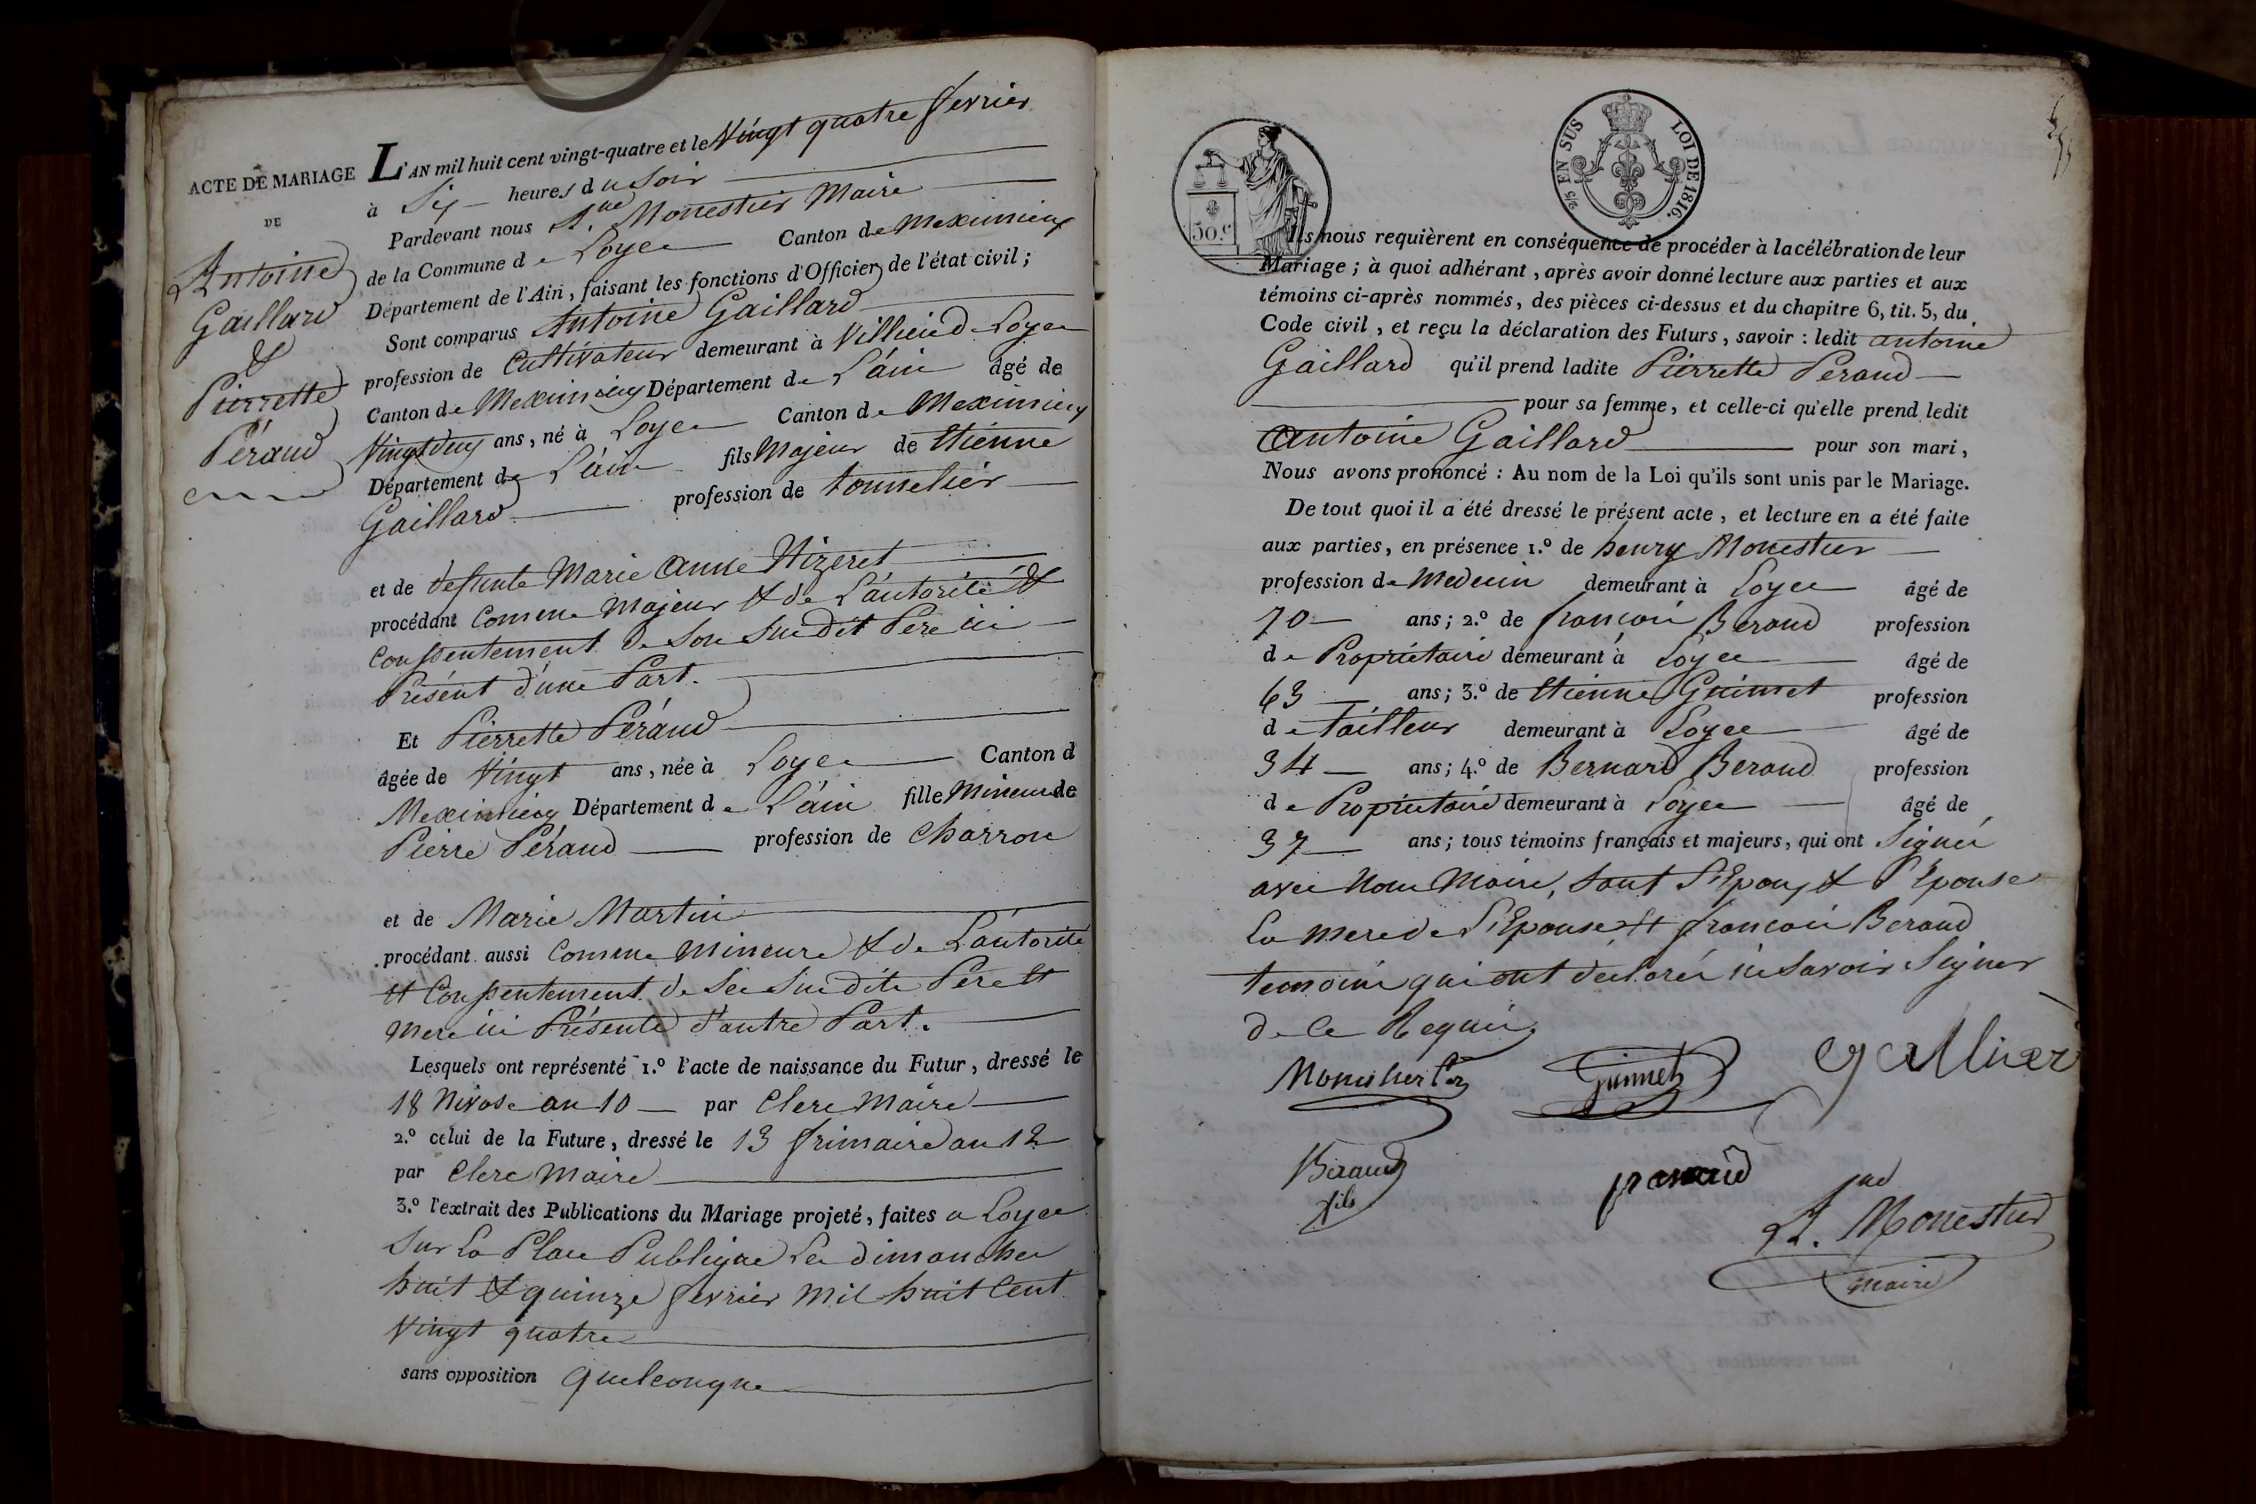 ACTE DE MARIAGE
DE
Antoine
Gaillard
&
Pierrette
Péraud
L'AN mil huit cent vingt-quatre et le Vingt quatre fevrier
à Six heures du Soir
Pardevant nous Monestier Maire
de la Commune de Loyes Canton de Meximieux
Département de l'Ain, faisant les fonctions d'Officier de l'état civil;
Sont comparus Antoine Gaillard
profession de Cultivateur demeurant à Villieu de Loyes
Canton de Meximieux Département de L'ain âgé de
Vingt deux ans, né à Loyes Canton de Meximieux
Département de L'ain fils Majeur de Etienne
Gaillard profession de tonnelier
et de defunte Marie Anne
procédant Comme Majeur & de L'autorité &
Consentement de Son Sus dit Pere ici
Présent d'une Part.
Et Pierrette Péraud
âgée de Vingt ans, née à Loyes Canton d
Meximieux Département de L'ain fille Mineure de
Pierre Péraud profession de Charron
et de Marie Martin
procédant aussi Comme Mineure & de L'autorité
et Consentement de Ses Sus dits Pere et
Mere ici Présents d'autre Part.
Lesquels ont représenté 1.º l'acte de naissance du Futur, dressé le
18 Nivose an 10 par Clerc Maire
2.º celui de la Future, dressé le 13 frimaire an 12
par Clerc Maire
3.º l'extrait des Publications du Mariage projeté, faites a Loyes
Sur La Place Publique Les dimanches
huit & quinze fevrier Mil huit Cent
Vingt quatre
sans opposition quelconque
2/5 EN SUS LOI DE 1816.
50.c
Ils nous requièrent en conséquence de procéder à la célébration de leur
Mariage; à quoi adhérant, après avoir donné lecture aux parties et aux
témoins ci-après nommés, des pièces ci-dessus et du chapitre 6, tit. 5, du
Code civil, et reçu la déclaration des Futurs, savoir : ledit antoine
Gaillard qu'il prend ladite Pierrette Peraud
pour sa femme, et celle-ci qu'elle prend ledit
Antoine Gaillard pour son mari,
Nous avons prononcé : Au nom de la Loi qu'ils sont unis par le Mariage.
De tout quoi il a été dressé le présent acte, et lecture en a été faite
aux parties, en présence 1.º de henry Monestier
profession de Medecin demeurant à Loyes âgé de
70 ans; 2.º de françois Beraud profession
de Propriétaire demeurant à Loyes âgé de
63 ans; 3.º de Etienne Guimet profession
de tailleur demeurant à Loyes âgé de
34 ans; 4.º de Bernard Beraud profession
de Propriétaire demeurant à Loyes âgé de
37 ans; tous témoins français et majeurs, qui ont Signés
avec Nous Maire, Sauf L'Epoux & L'Epouse
La mere de L'Epouse et françois Beraud
temoins qui ont déclarés ne Savoir Signer
de Ce Requis.
Guimet
Beraud
fils
Monestier
maire